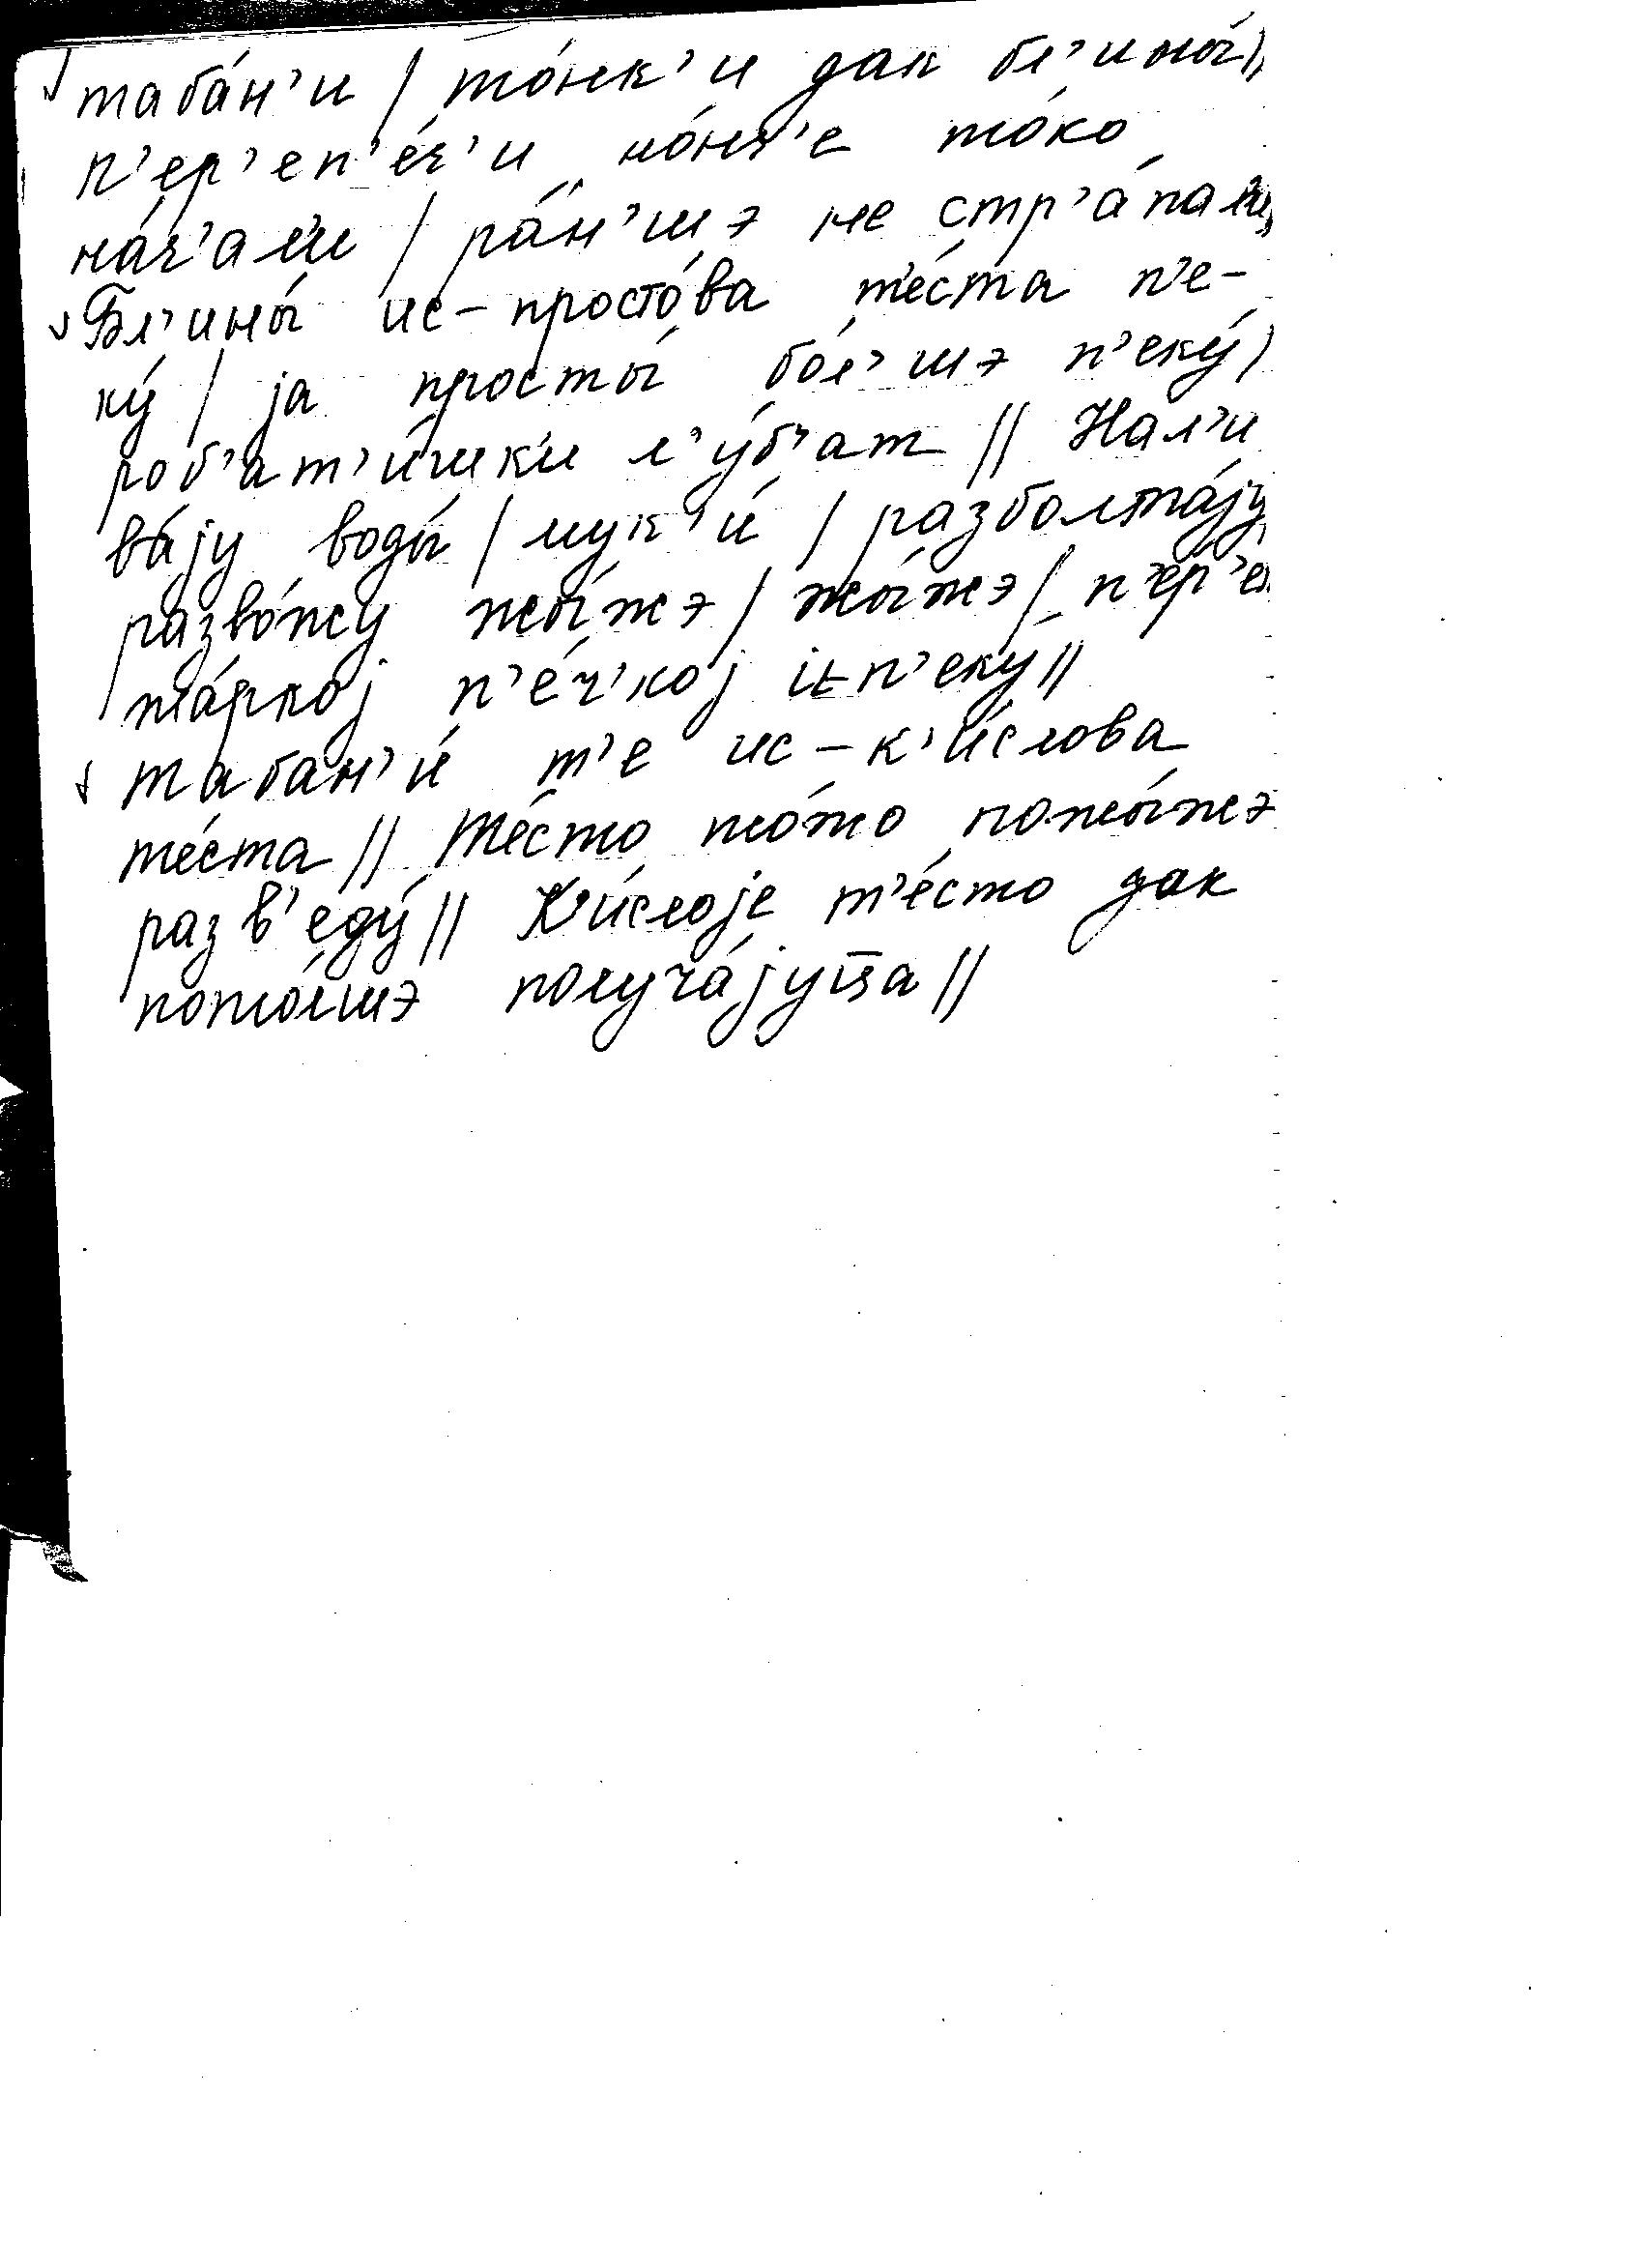 таба́н'и / то́нк'и дак бл'ины́ //
п'ер'еп'е́ч'и но́н'е то́ко
на́ч'ал'и / ра́н'шэ не стр'а́пал'и //
Бл'ины́ ис-просто́ва т'е́ста п'е-
ку́ / jа просты́ бо́л'шэ п'еку́ /
роб'ат'и́шк'и л'у́б'ат // Нал'и
ва́jу воды́ / мук'и́ / разболта́jу
разво́жу жы́жэ / жы́жэ / п'ер'ед
жа́ркоj п'е́ч'коj и п'еку́ //
табан'и́ т'е ис-к'и́слова
т'е́ста // Т'е́сто то́жо пожы́жэ
разв'еду́ // К'и́слоjе т'е́сто дак
пото́лшэ получа́jуц̄а //